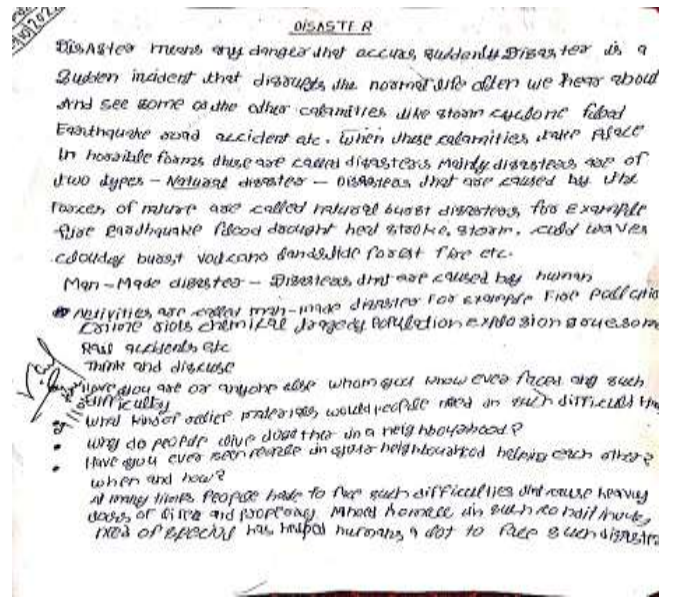 DISASTER
DisAster means any danger that accurs suddenly Disaster is a
Sudden incident that disrupts the normal life often we hear about
And see some or the other calamities like storm cyclone flood
Earthquake road accident etc. When these calamities take place
In horrible forms these are called disasters Mainly disasters are of
two types - Natural disaster - Disasters that are caused by the
forces of nature are called natural disasters, for Example
fire earthquake flood drought heat stroke, storm, cold waves
cloudey burst volcano landslide forest fire etc.
Man-Made disaster - Disasters that are caused by human
Activities are called man-made disaster For example Fire pollution
Crime riots chemical tragedy Population explosion
Rail accidents etc
Think and discuse
Have you are or anyone else whom you know ever faced any such
difficulty
What kind of relief materials would people need in such difficult
why do people live together in a neighbourhood?
Have you ever seen people in your neighbourhood helping each other?
when and how?
At many times people have to face such difficulties that cause heavy
loss of life and property. in such
need of special has helped humans a lot to face such disaster